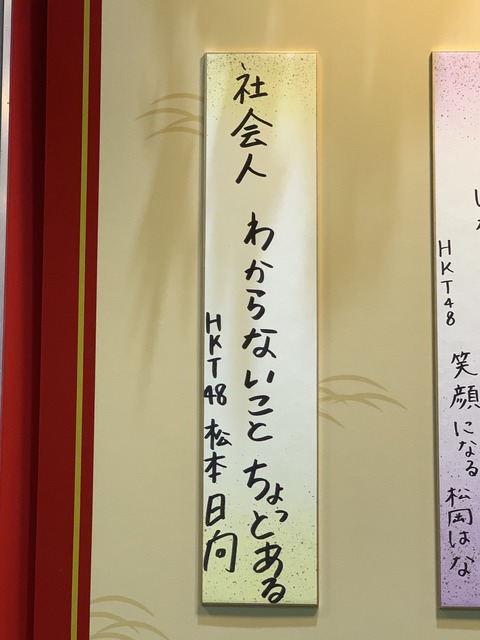 笑顔になる
HKT48 松岡はな
社会人 わからないこと ちょっとある
HKT48 松本日向